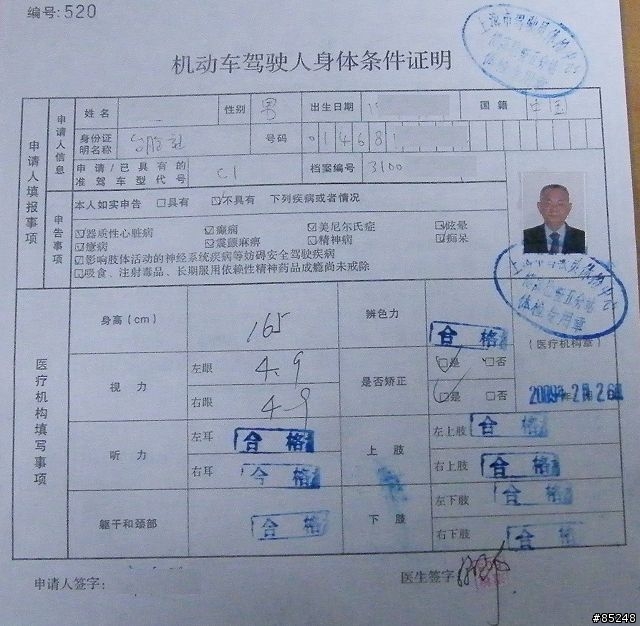 编号:520
机动车驾驶人身体条件证明
申请人填报事项
申请人信息
姓名 性别 男 出生日期 国籍 中国
身份证明名称 台胞证 号码 014681
申请/已具有的准驾车型代号 C1 档案编号 3100
申告事项
本人如实申告 □具有 ☑不具有 下列疾病或者情况
☑器质性心脏病 ☑癫痫 ☑美尼尔氏症 ☑眩晕
☑癔病 ☑震颤麻痹 ☑精神病 ☑痴呆
☑影响肢体活动的神经系统疾病等妨碍安全驾驶疾病
☑吸食、注射毒品、长期服用依赖性精神药品成瘾尚未戒除
医疗机构填写事项
身高(cm) 165 辨色力 合格
(医疗机构章)
视力 左眼 4.9 是否矫正 ☑是 □否
右眼 4.9 ☑是 □否
2009年2月26日
听力 左耳 合格 上肢 左上肢 合格
右耳 合格 右上肢 合格
躯干和颈部 合格 下肢 左下肢 合格
右下肢 合格
申请人签字: 医生签字:
体检专用章
#85248